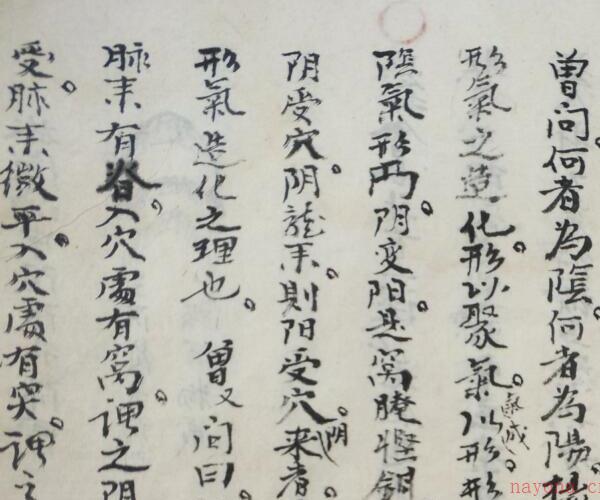 曾问。何者為陰。何者為陽。
形氣之造化形以聚氣。氣成以形形
陰氣形両。阴变阳是窩鉗
阴受穴。阴龍来。則阳受穴。阴来者。
形氣造化之理也。曾又问曰。
脉来有脊。入穴處有窩。謂之阴
受。脉来微平。入穴處有突。謂之